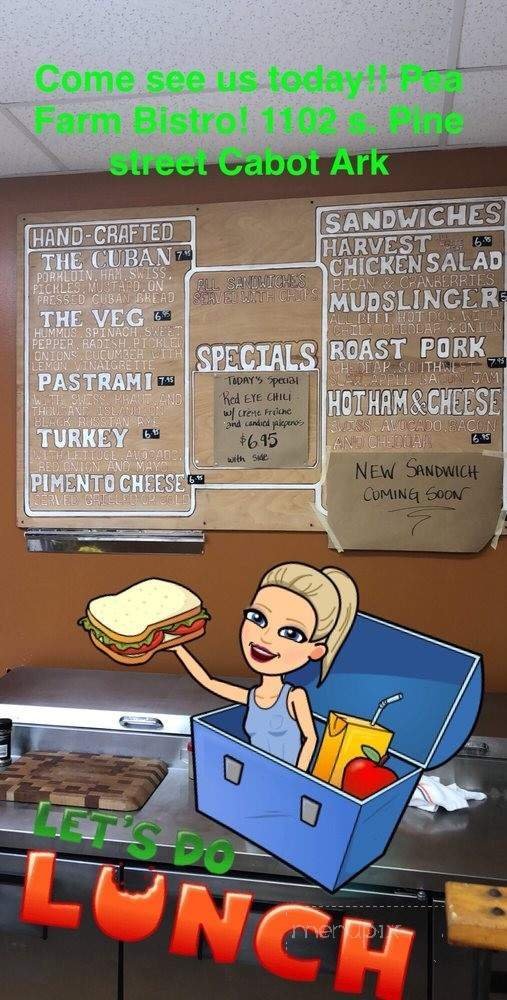 Come see us today!! Pea
Farm Bistro! 1102 s. Pine
street Cabot Ark
HAND-CRAFTED
THE CUBAN 7.45
PORKLOIN, HAM, SWISS,
PICKLES, MUSTARD, ON
PRESSED CUBAN BREAD
THE VEG 6.95
HUMMUS, SPINACH, SWEET
PEPPER, RADISH, PICKLED
ONIONS, CUCUMBER WITH
LEMON VINAIGRETTE
PASTRAMI 7.45
WITH SWISS, KRAUT, AND
THOUSAND ISLAND ON
BLACK RUSSIAN RYE
TURKEY 6.95
WITH LETTUCE, AVOCADO,
RED ONION AND MAYO
PIMENTO CHEESE 6.95
SERVED GRILLED OR COLD
ALL SANDWICHES
SERVED WITH CHIPS
SPECIALS
TODAY'S Special
Red EYE CHILI
w/ Crème Friche
and candied jalepenos
$6.95
with side
SANDWICHES
HARVEST 6.95
CHICKEN SALAD
PECAN & CRANBERRIES
MUDSLINGER
CHILI, CHEDDAR & ONION
ROAST PORK 7.45
CHEDDAR,
APPLE, BACON JAM
HOT HAM & CHEESE
SWISS, AVOCADO, BACON
AND CHEDDAR 6.95
NEW SANDWICH
COMING SOON
LET'S DO
LUNCH
menupix